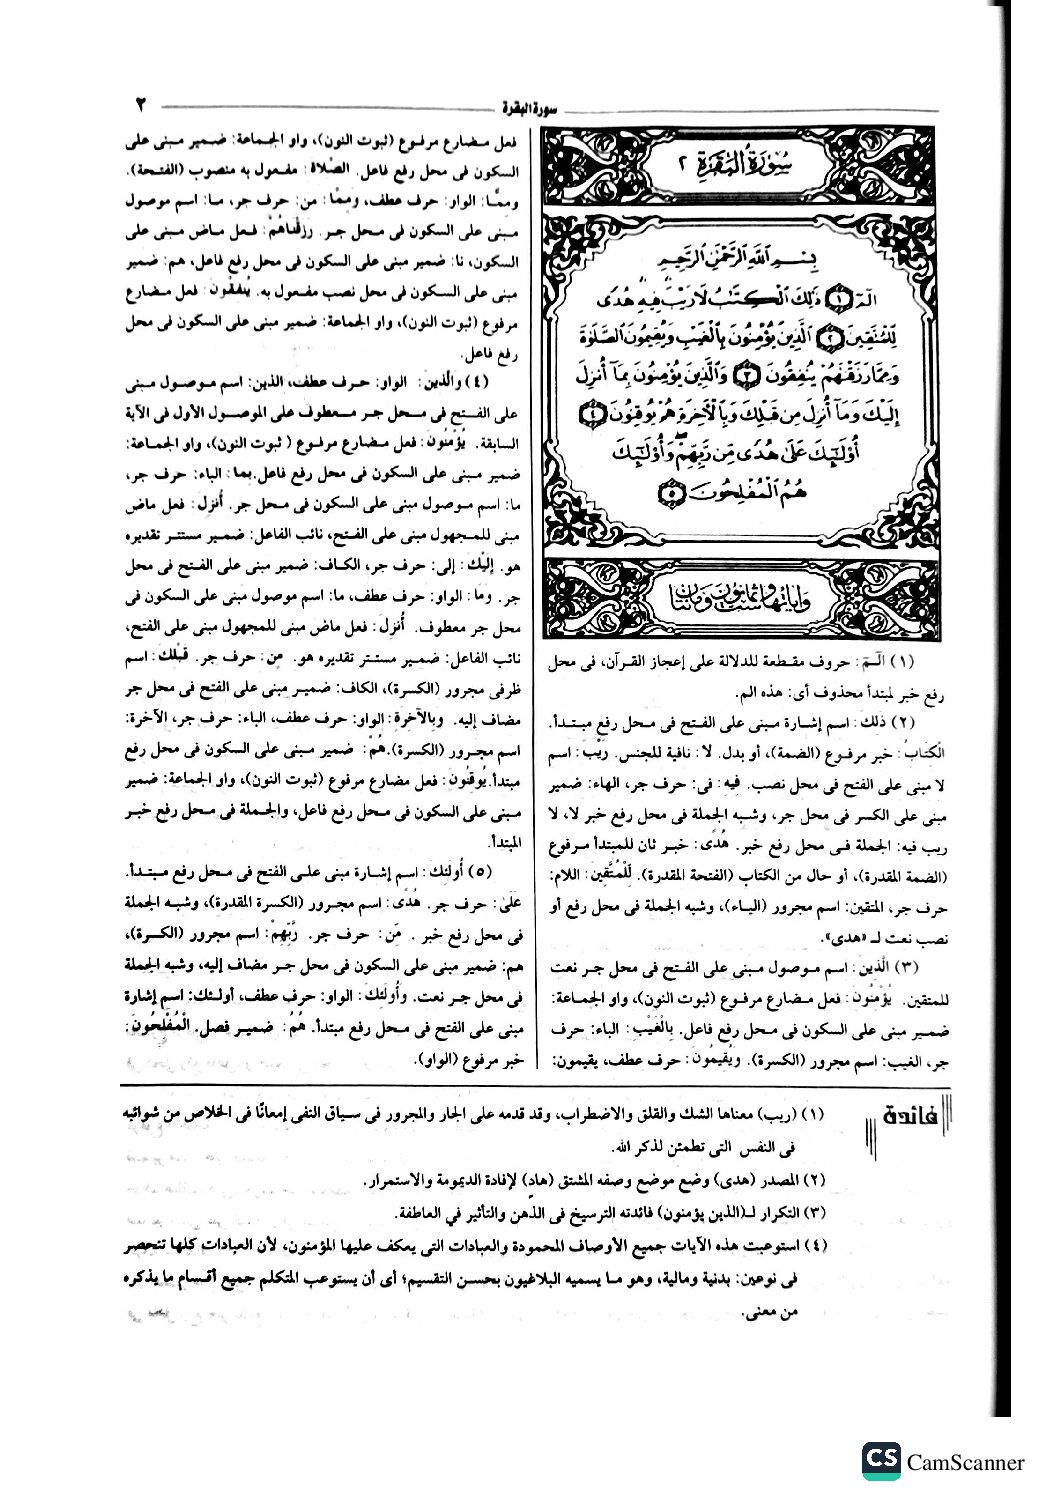 سورة البقرة
٢
سُورَةُ البَقَرَةِ ٢
بِسْمِ اللَّهِ الرَّحْمَٰنِ الرَّحِيمِ
الٓمٓ ﴿١﴾ ذَٰلِكَ الْكِتَابُ لَا رَيْبَ ۛ فِيهِ ۛ هُدًى
لِّلْمُتَّقِينَ ﴿٢﴾ الَّذِينَ يُؤْمِنُونَ بِالْغَيْبِ وَيُقِيمُونَ الصَّلَوٰةَ
وَمِمَّا رَزَقْنَٰهُمْ يُنفِقُونَ ﴿٣﴾ وَالَّذِينَ يُؤْمِنُونَ بِمَآ أُنزِلَ
إِلَيْكَ وَمَآ أُنزِلَ مِن قَبْلِكَ وَبِالْءَاخِرَةِ هُمْ يُوقِنُونَ ﴿٤﴾
أُو۟لَٰٓئِكَ عَلَىٰ هُدًى مِّن رَّبِّهِمْ ۖ وَأُو۟لَٰٓئِكَ
هُمُ الْمُفْلِحُونَ ﴿٥﴾
وآياتها ست وثمانون ومائتان
(١) الٓـمٓ: حروف مقطعة للدلالة على إعجاز القرآن، فى محل
رفع خبر لمبتدأ محذوف أى: هذه الم.
(٢) ذلك: اسم إشارة مبنى على الفتح فى محل رفع مبتدأ.
الْكتابُ: خبر مرفوع (الضمة)، أو بدل. لا: نافية للجنس. رَيْبَ: اسم
لا مبنى على الفتح فى محل نصب. فيه: فى: حرف جر، الهاء: ضمير
مبنى على الكسر فى محل جر، وشبه الجملة فى محل رفع خبر لا، لا
ريب فيه: الجملة فى محل رفع خبر. هُدًى: خبر ثان للمبتدأ مرفوع
(الضمة المقدرة)، أو حال من الكتاب (الفتحة المقدرة). لِّلْمُتَّقِينَ: اللام:
حرف جر، المتقين: اسم مجرور (الياء)، وشبه الجملة فى محل رفع أو
نصب نعت لـ «هدى».
(٣) الَّذِينَ: اسم موصول مبنى على الفتح فى محل جر نعت
للمتقين. يُؤْمِنُونَ: فعل مضارع مرفوع (ثبوت النون)، واو الجماعة:
ضمير مبنى على السكون فى محل رفع فاعل. بِالْغَيْبِ: الباء: حرف
جر، الغيب: اسم مجرور (الكسرة). ويُقيمُون: حرف عطف، يقيمون:
فعل مضارع مرفوع (ثبوت النون)، واو الجماعة: ضمير مبنى على
السكون فى محل رفع فاعل. الصَّلاة: مفعول به منصوب (الفتحة).
وممَّا: الواو: حرف عطف، وممَّا: من: حرف جر، ما: اسم موصول
مبنى على السكون فى محل جر. رزقْناهُمْ: فعل ماض مبنى على
السكون، نا: ضمير مبنى على السكون فى محل رفع فاعل، هم: ضمير
مبنى على السكون فى محل نصب مفعول به. يُنفقُون: فعل مضارع
مرفوع (ثبوت النون)، واو الجماعة: ضمير مبنى على السكون فى محل
رفع فاعل.
(٤) والَّذينَ: الواو: حرف عطف، الذين: اسم موصول مبنى
على الفتح فى محل جر معطوف على الموصول الأول فى الآية
السابقة. يُؤْمنُونَ: فعل مضارع مرفوع ( ثبوت النون)، واو الجماعة:
ضمير مبنى على السكون فى محل رفع فاعل.بما: الباء: حرف جر،
ما: اسم موصول مبنى على السكون فى محل جر. أُنزل: فعل ماض
مبنى للمجهول مبنى على الفتح، نائب الفاعل: ضمير مستتر تقديره
هو. إليْك: إلى: حرف جر، الكاف: ضمير مبنى على الفتح فى محل
جر. وما: الواو: حرف عطف، ما: اسم موصول مبنى على السكون فى
محل جر معطوف. أُنزل: فعل ماض مبنى للمجهول مبنى على الفتح،
نائب الفاعل: ضمير مستتر تقديره هو. من: حرف جر. قبْلك: اسم
ظرفى مجرور (الكسرة)، الكاف: ضمير مبنى على الفتح فى محل جر
مضاف إليه. وبالآخرة: الواو: حرف عطف، الباء: حرف جر، الآخرة:
اسم مجرور (الكسرة).هُمْ: ضمير مبنى على السكون فى محل رفع
مبتدأ.يُوقنُونَ: فعل مضارع مرفوع (ثبوت النون)، واو الجماعة: ضمير
مبنى على السكون فى محل رفع فاعل، والجملة فى محل رفع خبر
المبتدأ.
(٥) أُولئك: اسم إشارة مبنى على الفتح فى محل رفع مبتدأ.
علَىٰ: حرف جر. هُدًى: اسم مجرور (الكسرة المقدرة)، وشبه الجملة
فى محل رفع خبر . مّن: حرف جر. رَّبّهِمْ: اسم مجرور (الكسرة)،
هم: ضمير مبنى على السكون فى محل جر مضاف إليه، وشبه الجملة
فى محل جر نعت. وأُولئك: الواو: حرف عطف، أولئك: اسم إشارة
مبنى على الفتح فى محل رفع مبتدأ. هُمُ: ضمير فصل. الْمُفْلحُونَ:
خبر مرفوع (الواو).
فائدة
(١) (ريب) معناها الشك والقلق والاضطراب، وقد قدمه على الجار والمجرور فى سياق النفى إمعانًا فى الخلاص من شوائبه
فى النفس التى تطمئن لذكر الله.
(٢) المصدر (هدى) وضع موضع وصفه المشتق (هادٍ) لإفادة الديمومة والاستمرار.
(٣) التكرار لـ(الذين يؤمنون) فائدته الترسيخ فى الذهن والتأثير في العاطفة.
(٤) استوعبت هذه الآيات جميع الأوصاف المحمودة والعبادات التى يعكف عليها المؤمنون، لأن العبادات كلها تنحصر
فى نوعين: بدنية ومالية، وهو ما يسميه البلاغيون بحسن التقسيم؛ أى أن يستوعب المتكلم جميع أقسام ما يذكره
من معنى.
CS CamScanner